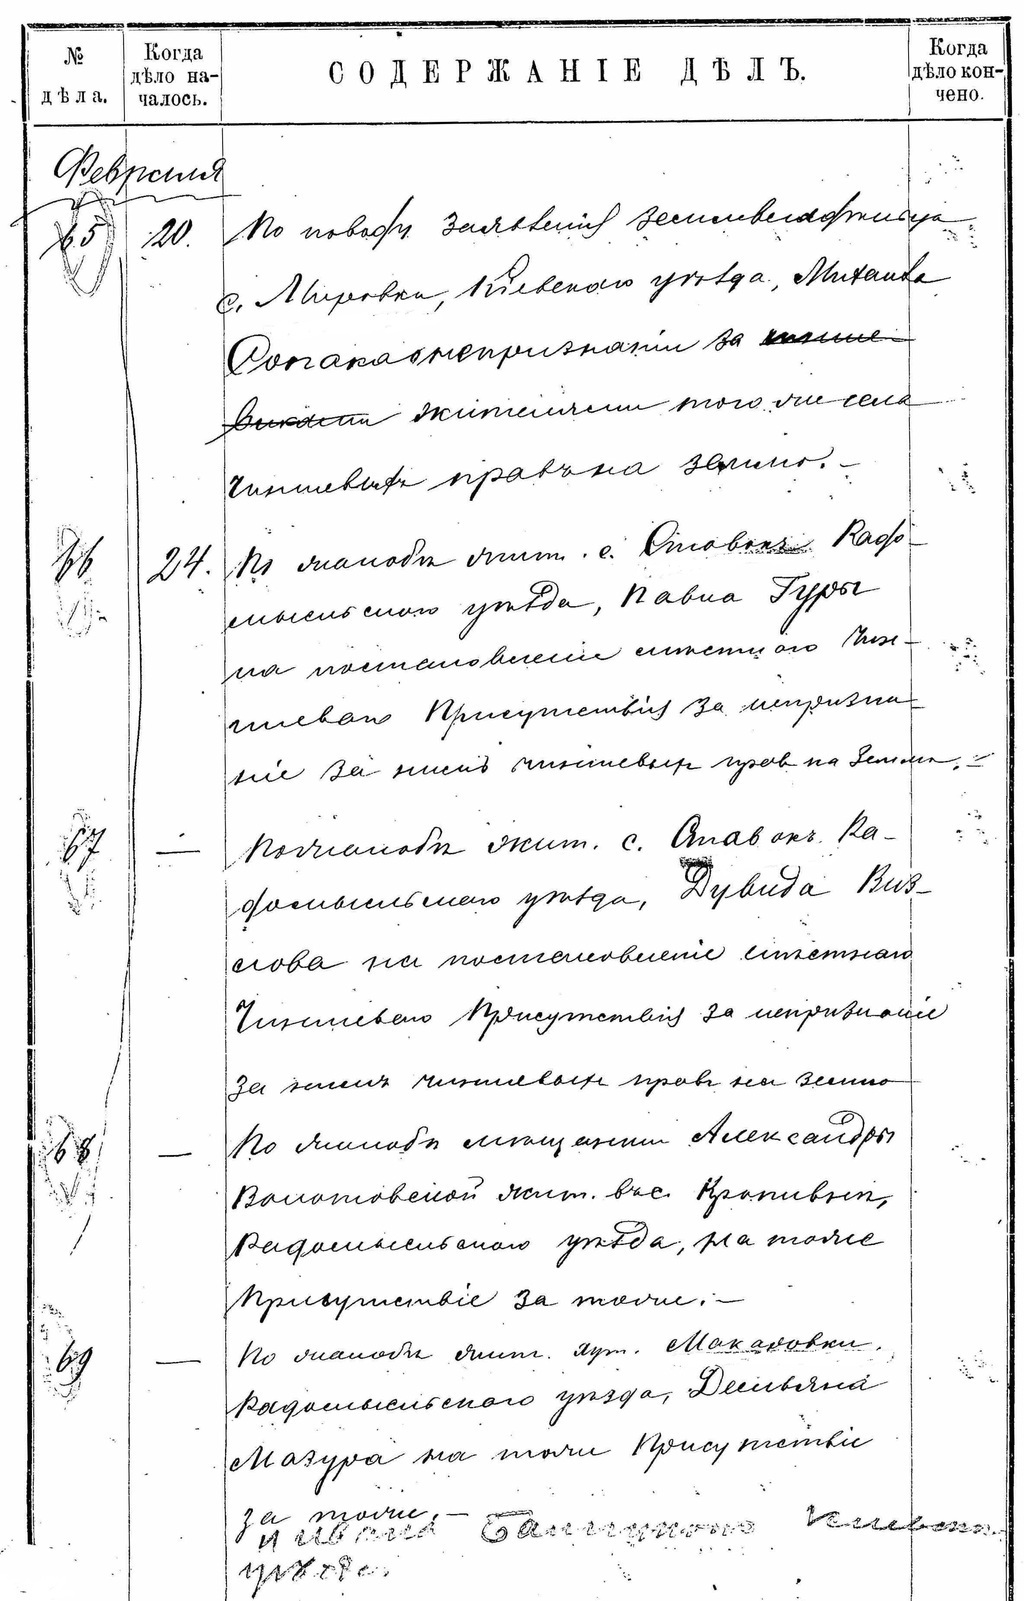 № дѣла.
Когда дѣло началось.
СОДЕРЖАНІЕ ДѢЛЪ.
Когда дѣло кончено.
Февраля
65 20. По поводу заявленія землевладѣльца
с. Мировки, Кіевскаго уѣзда, Михаила
о непризнаніи за
жителями того же села
чиншевыхъ правъ на землю.—
66 24. По жалобѣ жит. с. Ставокъ Радо-
мысльскаго уѣзда, Павла Гуры
на постановленіе мѣстнаго Чин-
шеваго Присутствія за непризна-
ніе за нимъ чиншевыхъ правъ на землю.—
67 — По жалобѣ жит. с. Ставокъ Ра-
домысльскаго уѣзда, Дувида Виз-
лова на постановленіе мѣстнаго
Чиншеваго Присутствія за непризнаніе
за нимъ чиншевыхъ правъ на землю
68 — По жалобѣ мѣщанки Александры
жит. въ с. Кропивнѣ,
Радомысльскаго уѣзда, на тоже
Присутствіе за тоже.—
69 — По жалобѣ жит. хут. Макаровки,
Радомысльскаго уѣзда, Демьяна
Мазура на тоже Присутствіе
за тоже.—
уѣзда.